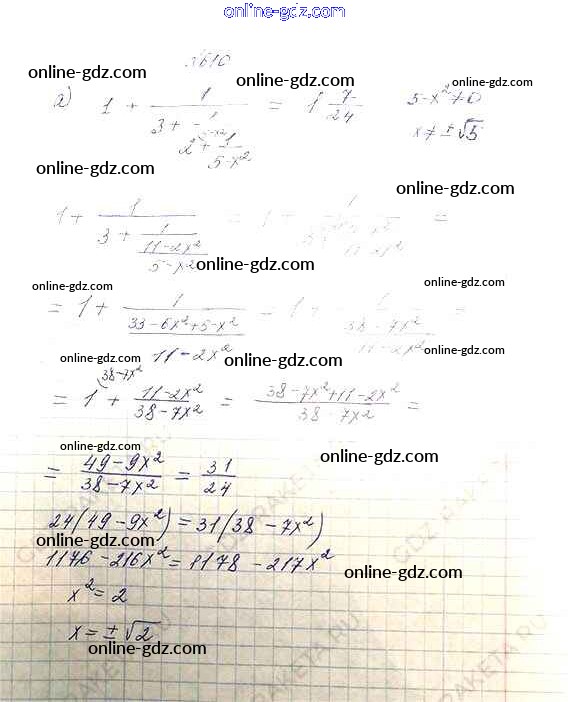 online-gdz.com
№610
online-gdz.com online-gdz.com online-gdz.com
а) 1 + 1/(3 + 1/(2 + 1/(5-x²))) = 1 7/24 5-x²≠0
x ≠ ±√5
online-gdz.com online-gdz.com
1 + 1/(3 + 1/((11-2x²)/(5-x²))) = 1 + =
online-gdz.com
online-gdz.com online-gdz.com
= 1 + 1/((33-6x²+5-x²)/(11-2x²)) = 1 + 1/((38-7x²)/(11-2x²)) =
online-gdz.com online-gdz.com online-gdz.com
38-7x²
= 1 + (11-2x²)/(38-7x²) = (38-7x²+11-2x²)/(38-7x²) =
online-gdz.com online-gdz.com
= (49-9x²)/(38-7x²) = 31/24
24(49-9x²) = 31(38-7x²)
online-gdz.com online-gdz.com
1176-216x² = 1178-217x²
online-gdz.com
x² = 2
x = ±√2
online-gdz.com